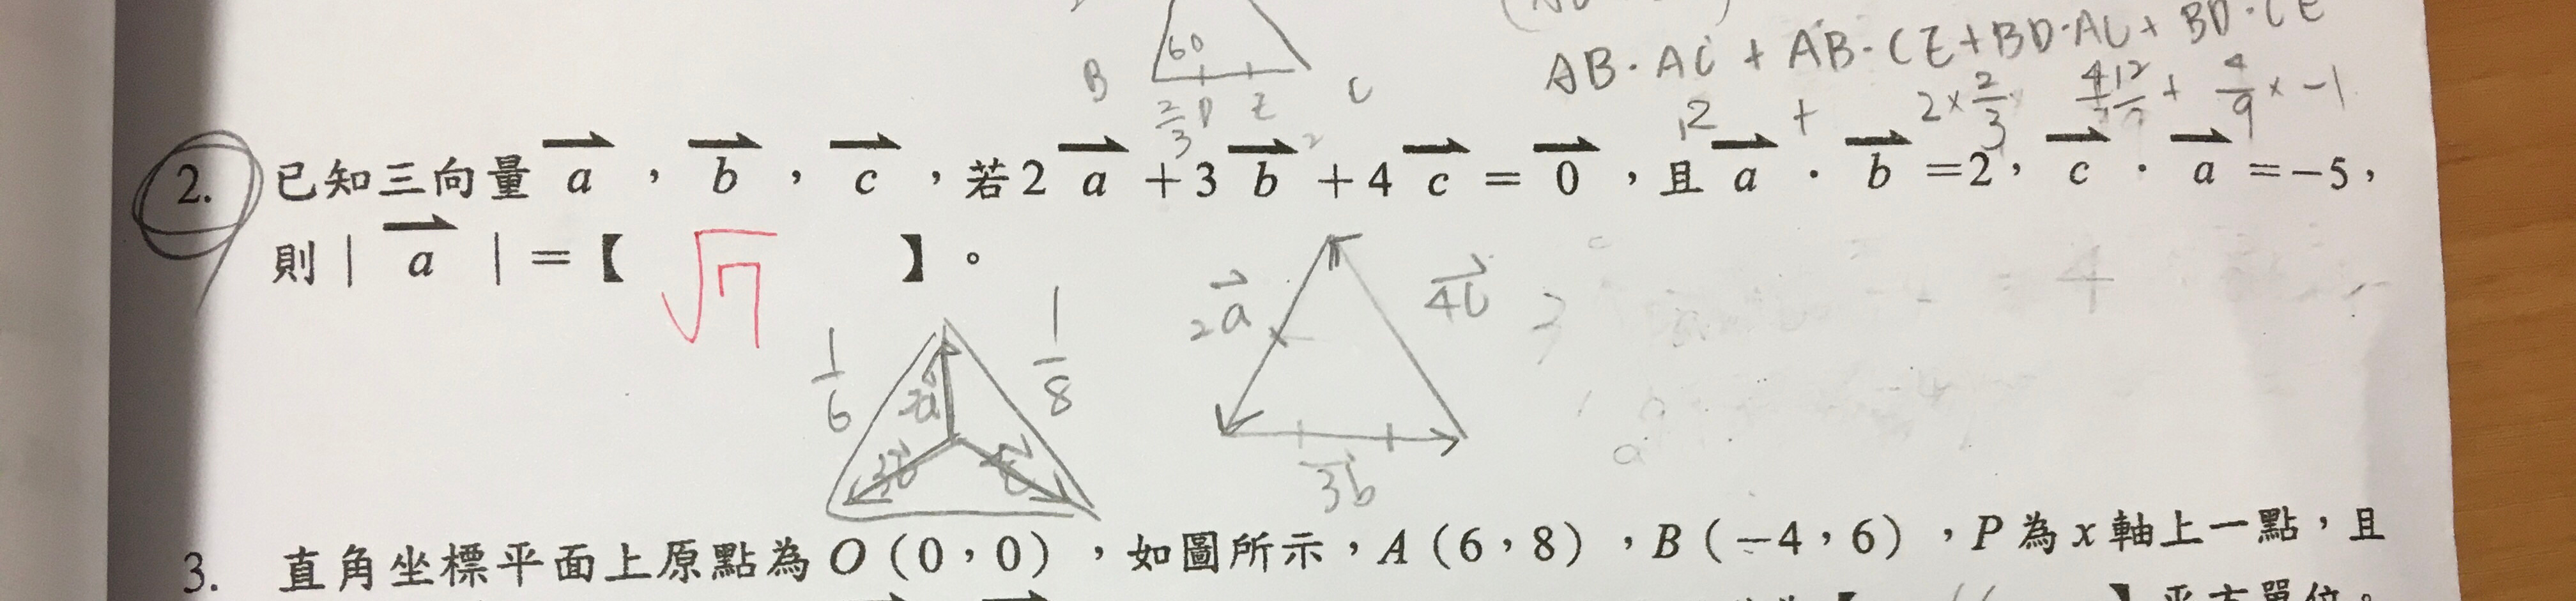 60
B D E C
2/3
AB·AC + AB·CE + BD·AC + BD·CE
2 + 2×2/3 4/9 × -1
2. 已知三向量 a,b,c,若2a+3b+4c=0,且a·b=2,c·a=-5,
則|a|=【 √7 】。
1/6 1/8 2a 4c
3b
3. 直角坐標平面上原點為O(0,0),如圖所示,A(6,8),B(-4,6),P為x軸上一點,且
】平方單位。